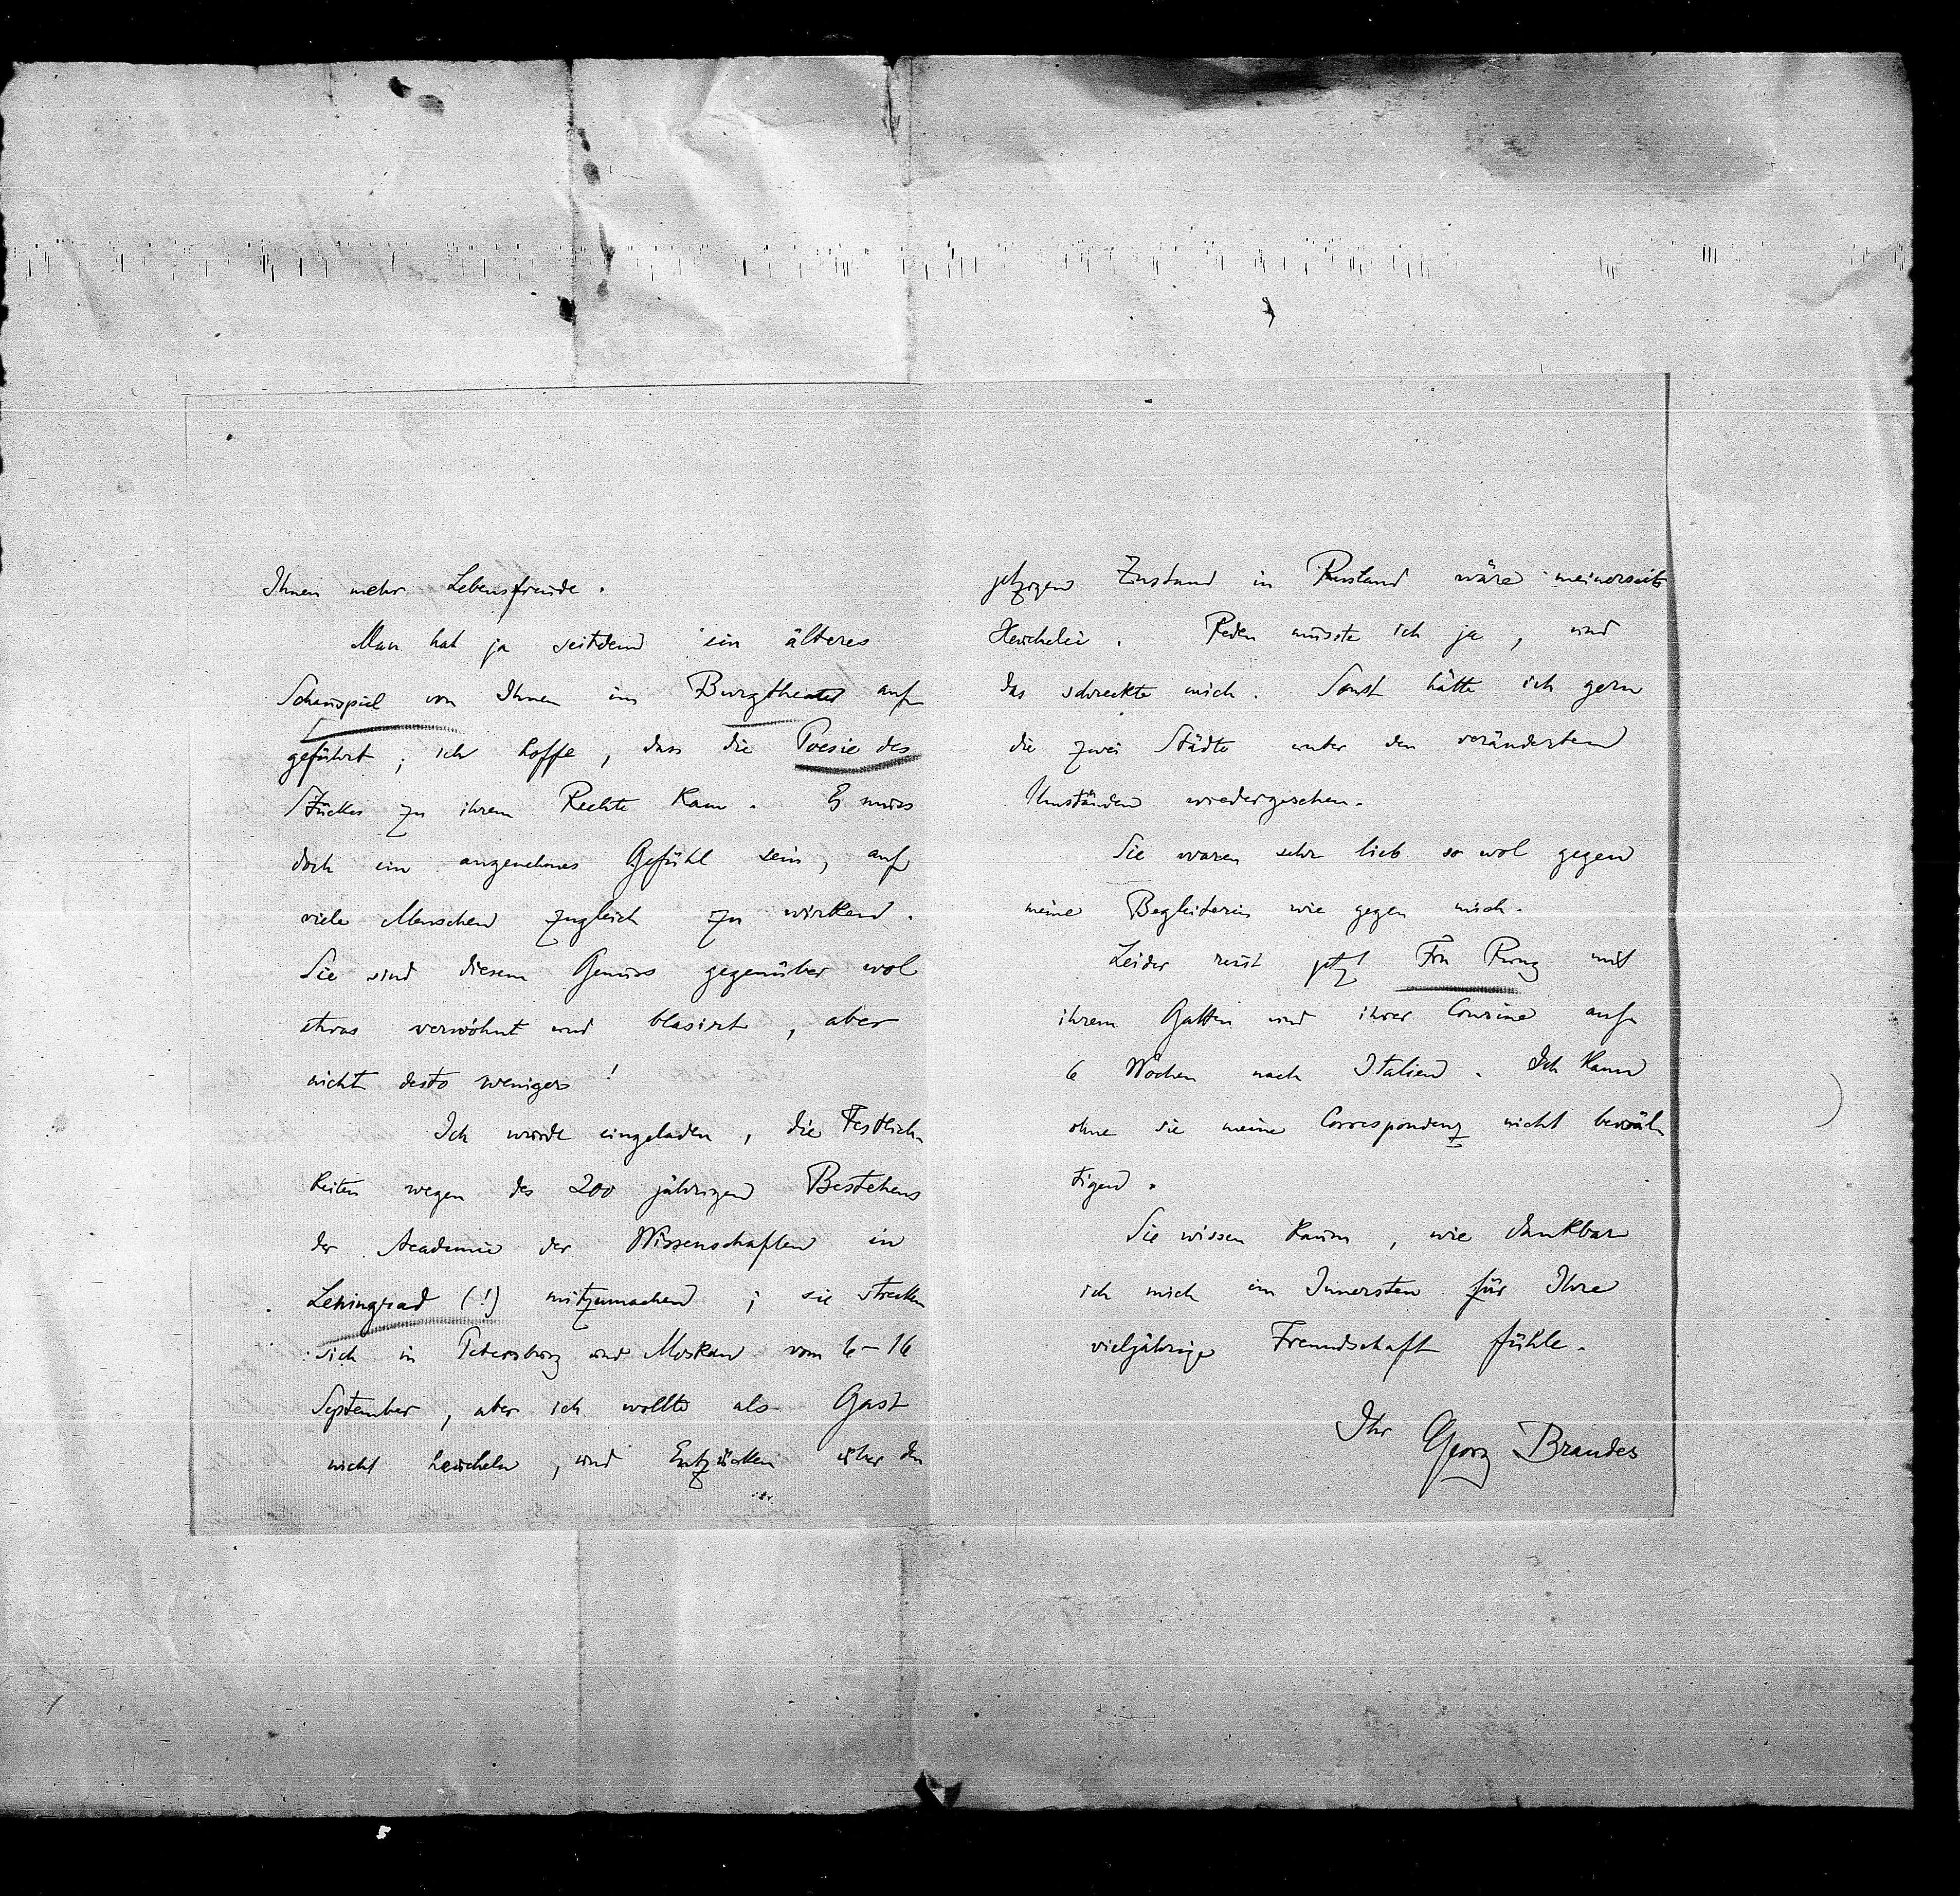 Ihnen mehr Lebensfreude.
Man hat ja seitdem ein älteres
Schauspiel von Ihnen im Burgtheater auf
geführt; ich hoffe, dass die Poesie des
Stückes zu ihrem Rechte kam. Es muss
doch ein angenehmes Gefühl sein, auf
viele Menschen zugleich zu wirken.
Sie sind diesem Genuss gegenüber wol
etwas verwöhnt und blasirt, aber
nicht desto weniger!
Ich wurde eingeladen, die Festlich
keiten wegen des 200 jährigen Bestehens
der Academie der Wissenschaften in
Leningrad (!) mitzumachen; sie strecken
sich in Petersburg und Moskau vom 6-16
September, aber ich wollte als Gast
nicht heucheln, und Entzücken über den
jetzigen Zustand in Russland wäre meinerseits
Heuchelei. Reden müsste ich ja, und
das schreckte mich. Sonst hätte ich gern
die zwei Städte unter den veränderten
Umständen wiedergesehen.
Sie waren sehr lieb so wol gegen
meine Begleiterin wie gegen mich.
Leider reist jetzt Frau Rung mit
ihrem Gatten und ihrer Cousine auf
6 Wochen nach Italien. Ich kann
ohne sie meine Correspondenz nicht bewäl
tigen.
Sie wissen kaum, wie dankbar
ich mich im Innersten für Ihre
vieljährige Freundschaft fühle.
Ihr Georg Brandes